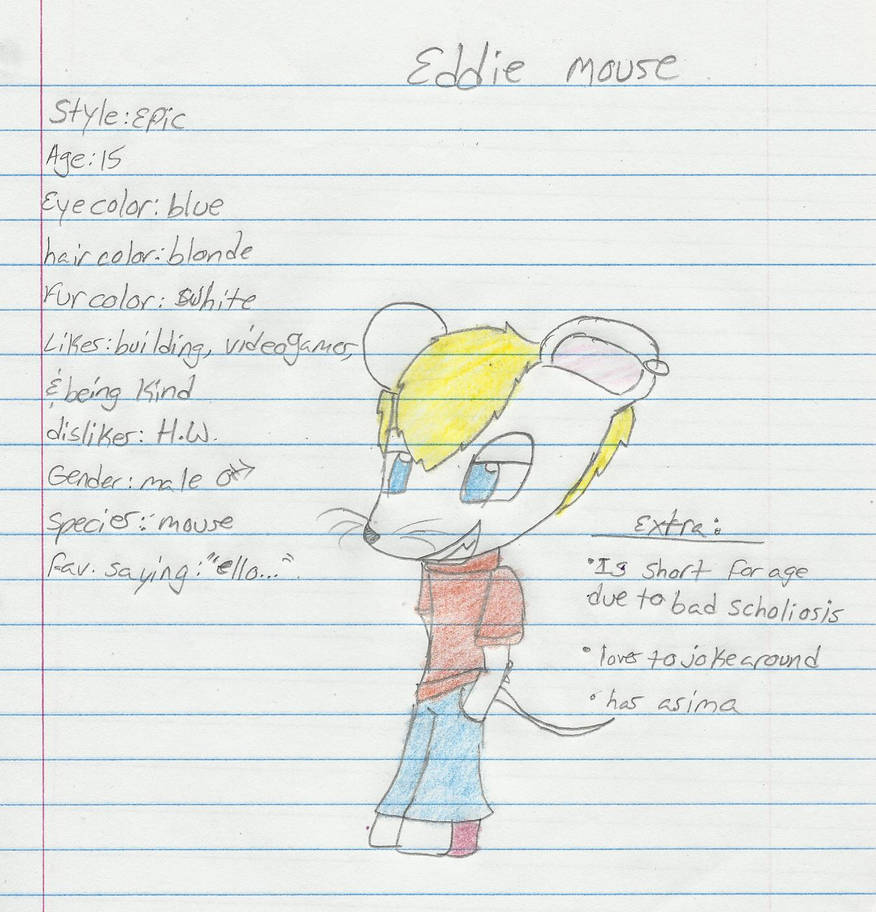 Eddie mouse
Style: Epic
Age: 15
Eye color: blue
hair color: blonde
Fur color: white
Likes: building, videogames,
& being kind
dislikes: H.W.
Gender: male ♂
Species: mouse
Fav. saying: "ello..."
Extra:
•Is short for age
due to bad scholiosis
•loves to joke around
•has asima